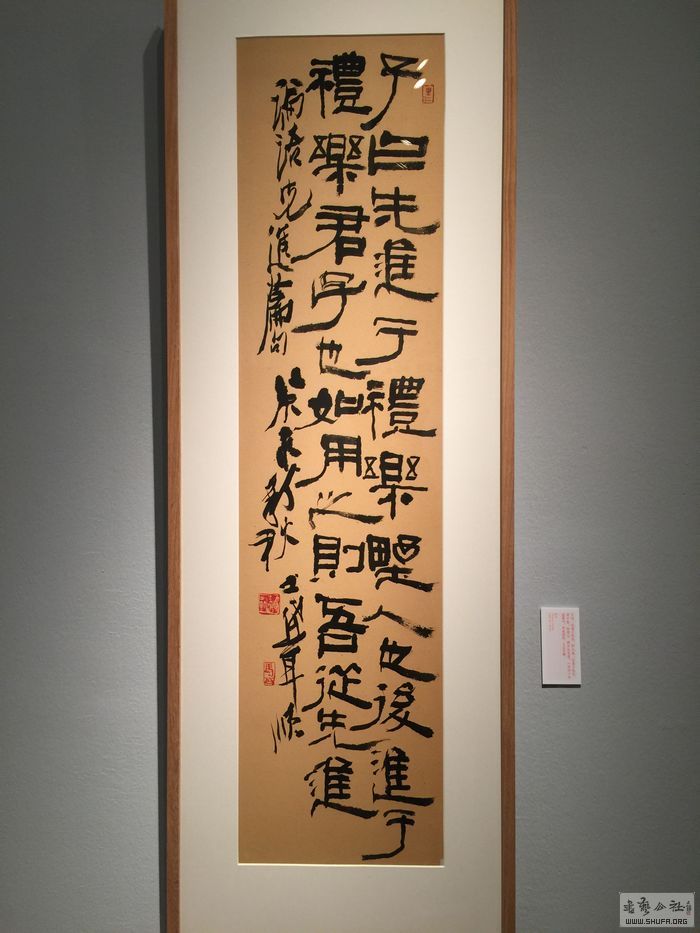 子曰先進于禮樂野人也後進于
禮樂君子也如用之則吾從先進
論語先進篇句
秋
WWW.SHUFA.ORG